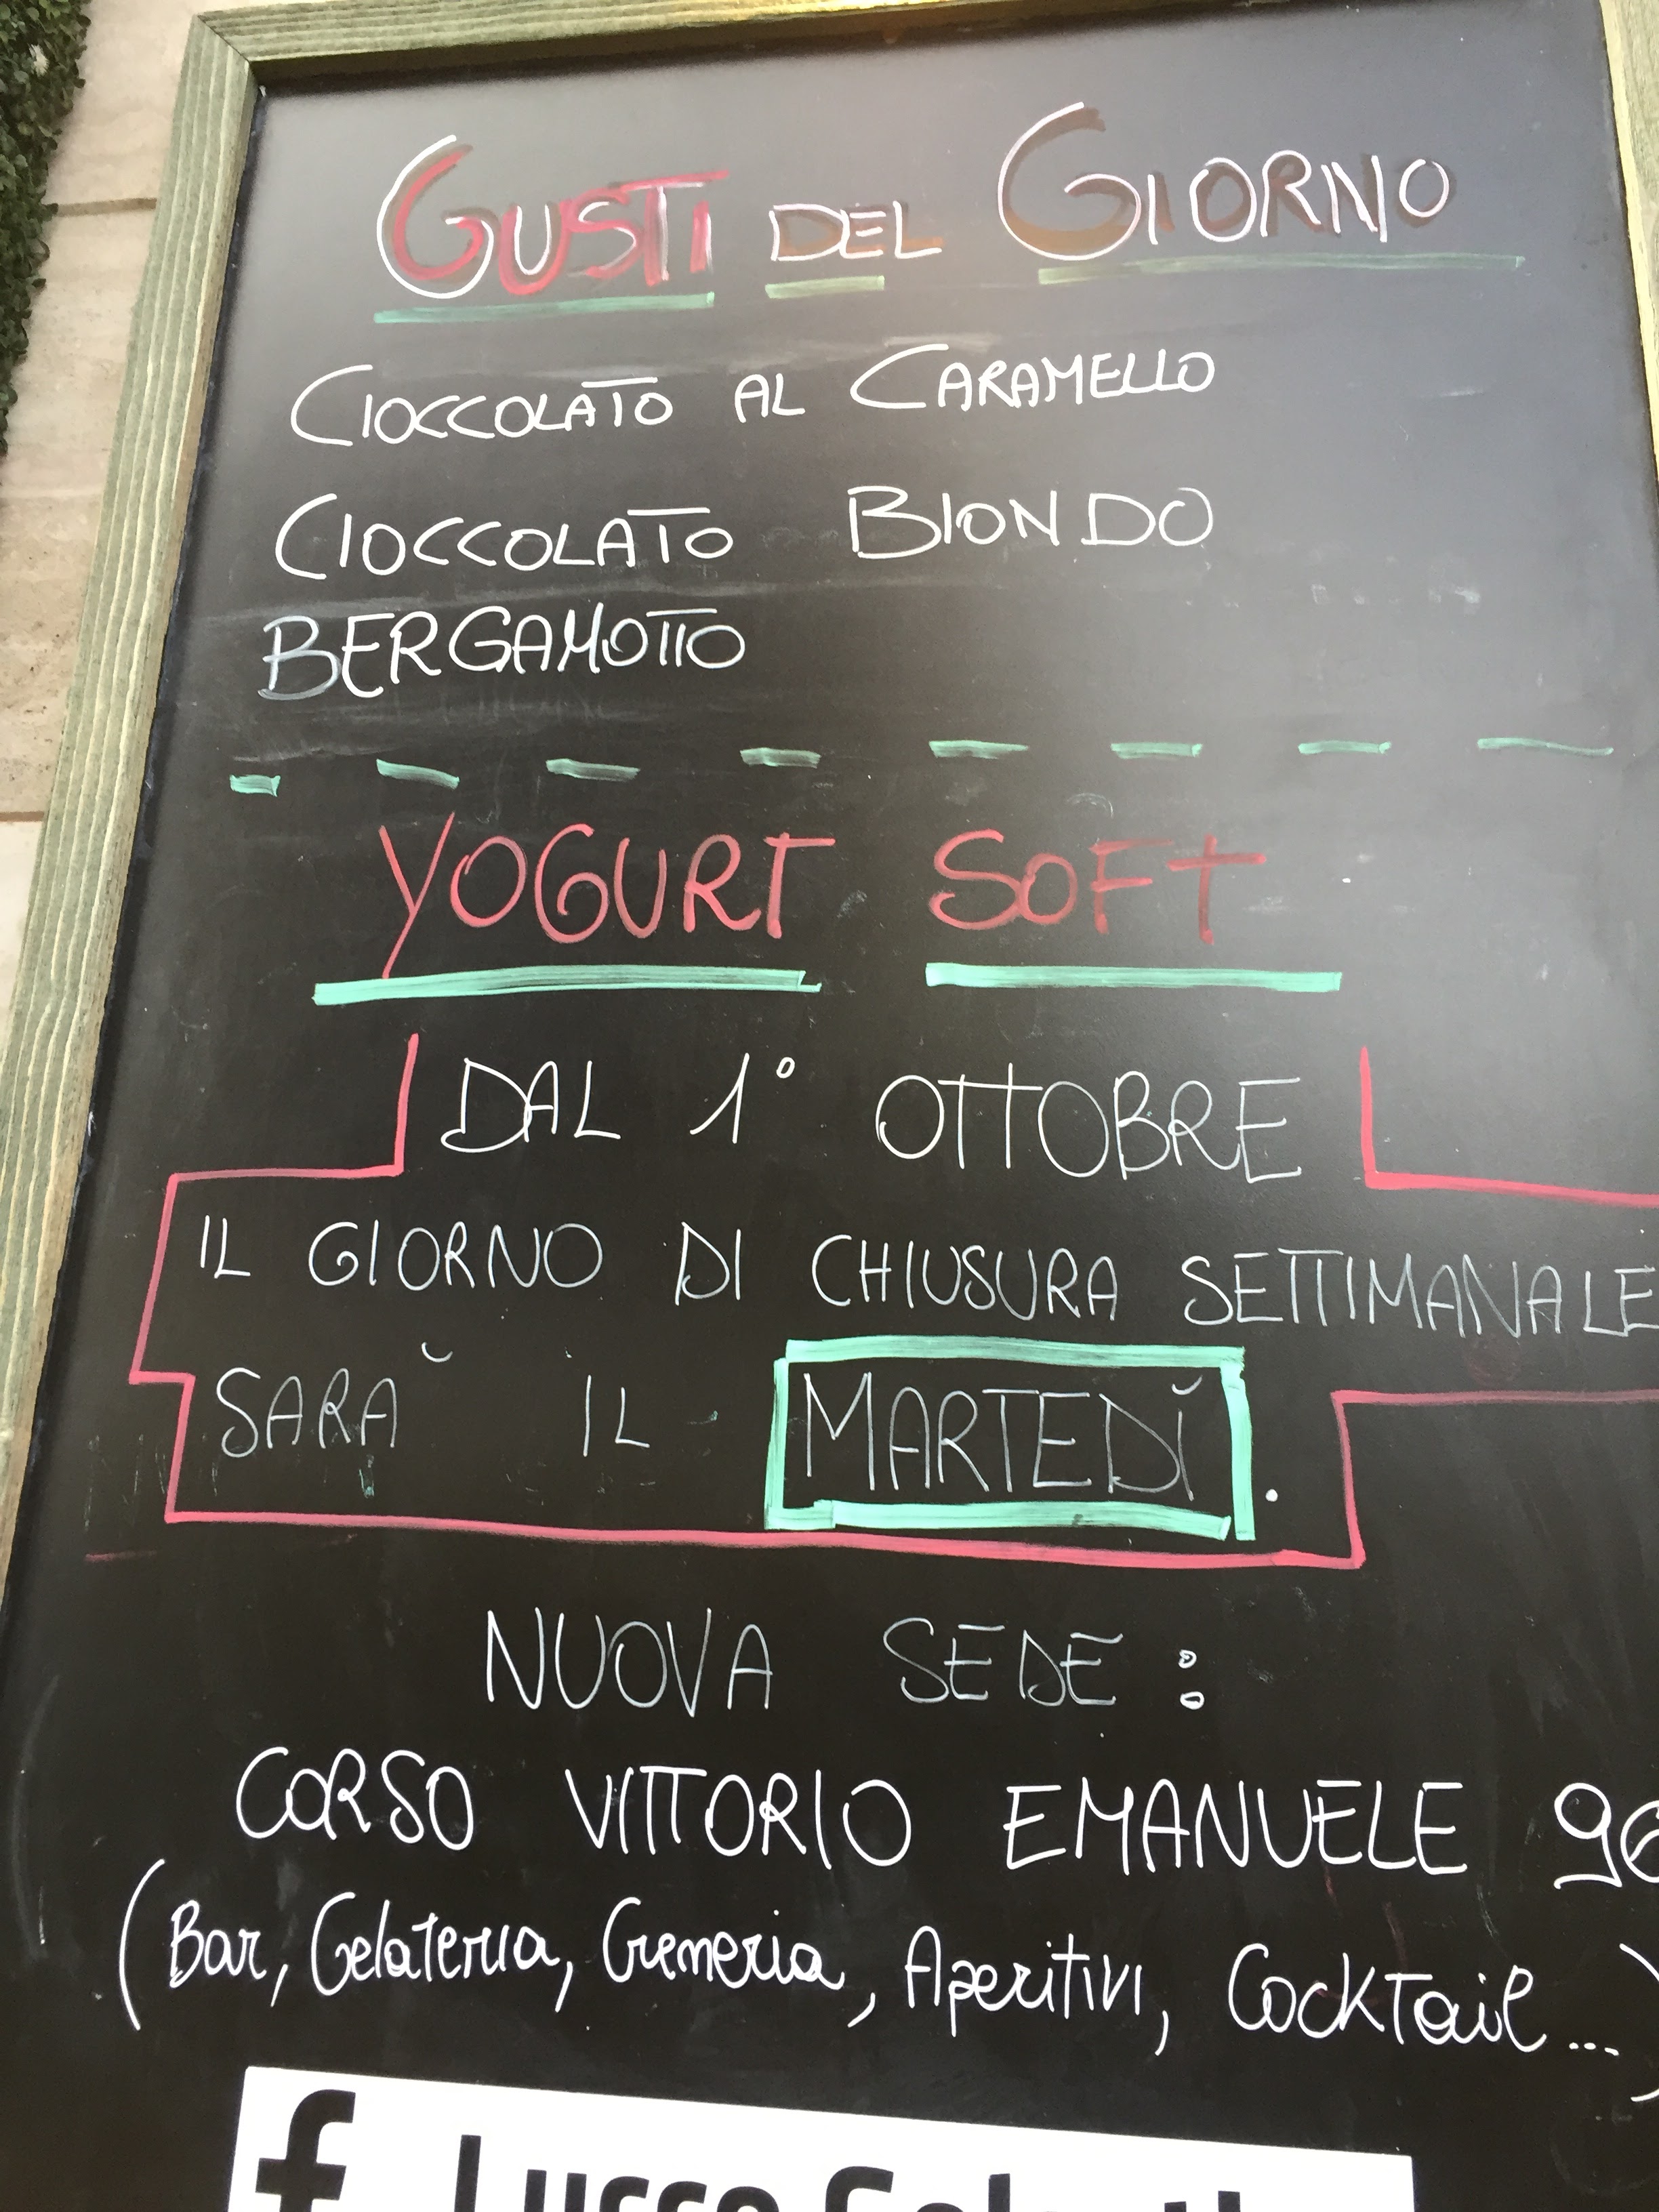 GUSTI DEL GIORNO
CIOCCOLATO AL CARAMELLO
CIOCCOLATO BIONDO
BERGAMOTTO
YOGURT SOFT
DAL 1° OTTOBRE
IL GIORNO DI CHIUSURA SETTIMANALE
SARĂ IL MARTEDĬ.
NUOVA SEDE:
CORSO VITTORIO EMANUELE 96
(Bar, Gelateria, Cremeria, Aperitivi, Cocktail...)
f